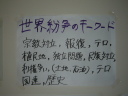 世界紛争のキーワード
宗教対立, 報復, テロ,
植民地, 独立問題, 民族対立,
利権争い, (土地・石油), テロ
国連, 歴史